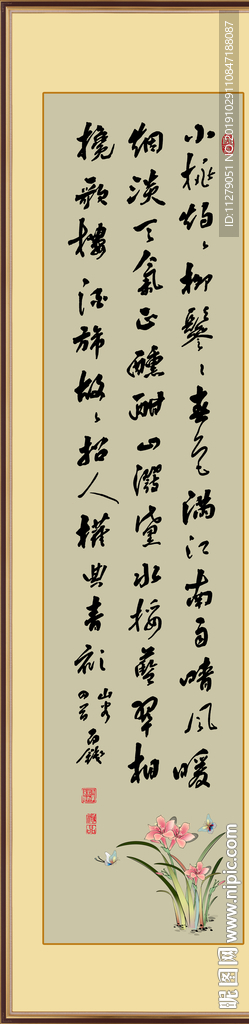 小桃灼〻柳鬖〻春色滿江南雨晴风暖
烟淡天氣正醺酣山潑黛水挼藍翠相
攙歌樓酒旆故〻招人權典青衫
ID:11279051 NO:20191029110847188087
昵图网 www.nipic.com